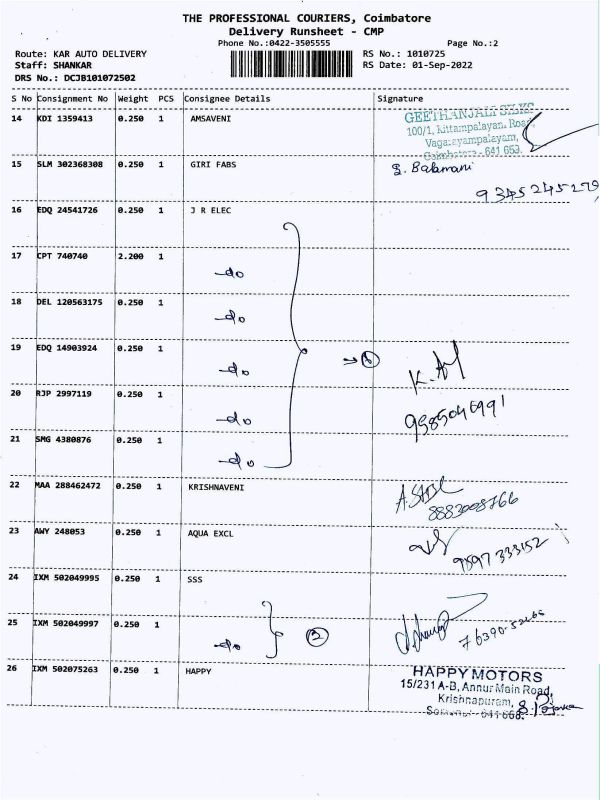 THE PROFESSIONAL COURIERS, Coimbatore
Delivery Runsheet - CMP
Phone No.:0422-3505555
Page No.:2
Route: KAR AUTO DELIVERY
RS No.: 1010725
Staff: SHANKAR
RS Date: 01-Sep-2022
DRS No.: DCJB101072502
S No Consignment No Weight PCS Consignee Details Signature
14 KDI 1359413 0.250 1 AMSAVENI
GEETHANJALI SILKS
100/1, Kittampalayan, Road,
Vagarayampalayam,
Coimbatore - 641 659.
15 SLM 302368308 0.250 1 GIRI FABS
S. Balamani
9345245279
16 EDQ 24541726 0.250 1 J R ELEC
17 CPT 740740 2.200 1
-do
18 DEL 120563175 0.250 1
-do
19 EDQ 14903924 0.250 1
-do
20 RJP 2997119 0.250 1
-do
21 SMG 4380876 0.250 1
-do
22 MAA 288462472 0.250 1 KRISHNAVENI
8883008766
23 AWY 248053 0.250 1 AQUA EXCL
9597 333152
24 IXM 502049995 0.250 1 SSS
25 IXM 502049997 0.250 1
-do
2
26 IXM 502075263 0.250 1 HAPPY
HAPPY MOTORS
15/231 A-B, Annur Main Road,
Krishnapuram,